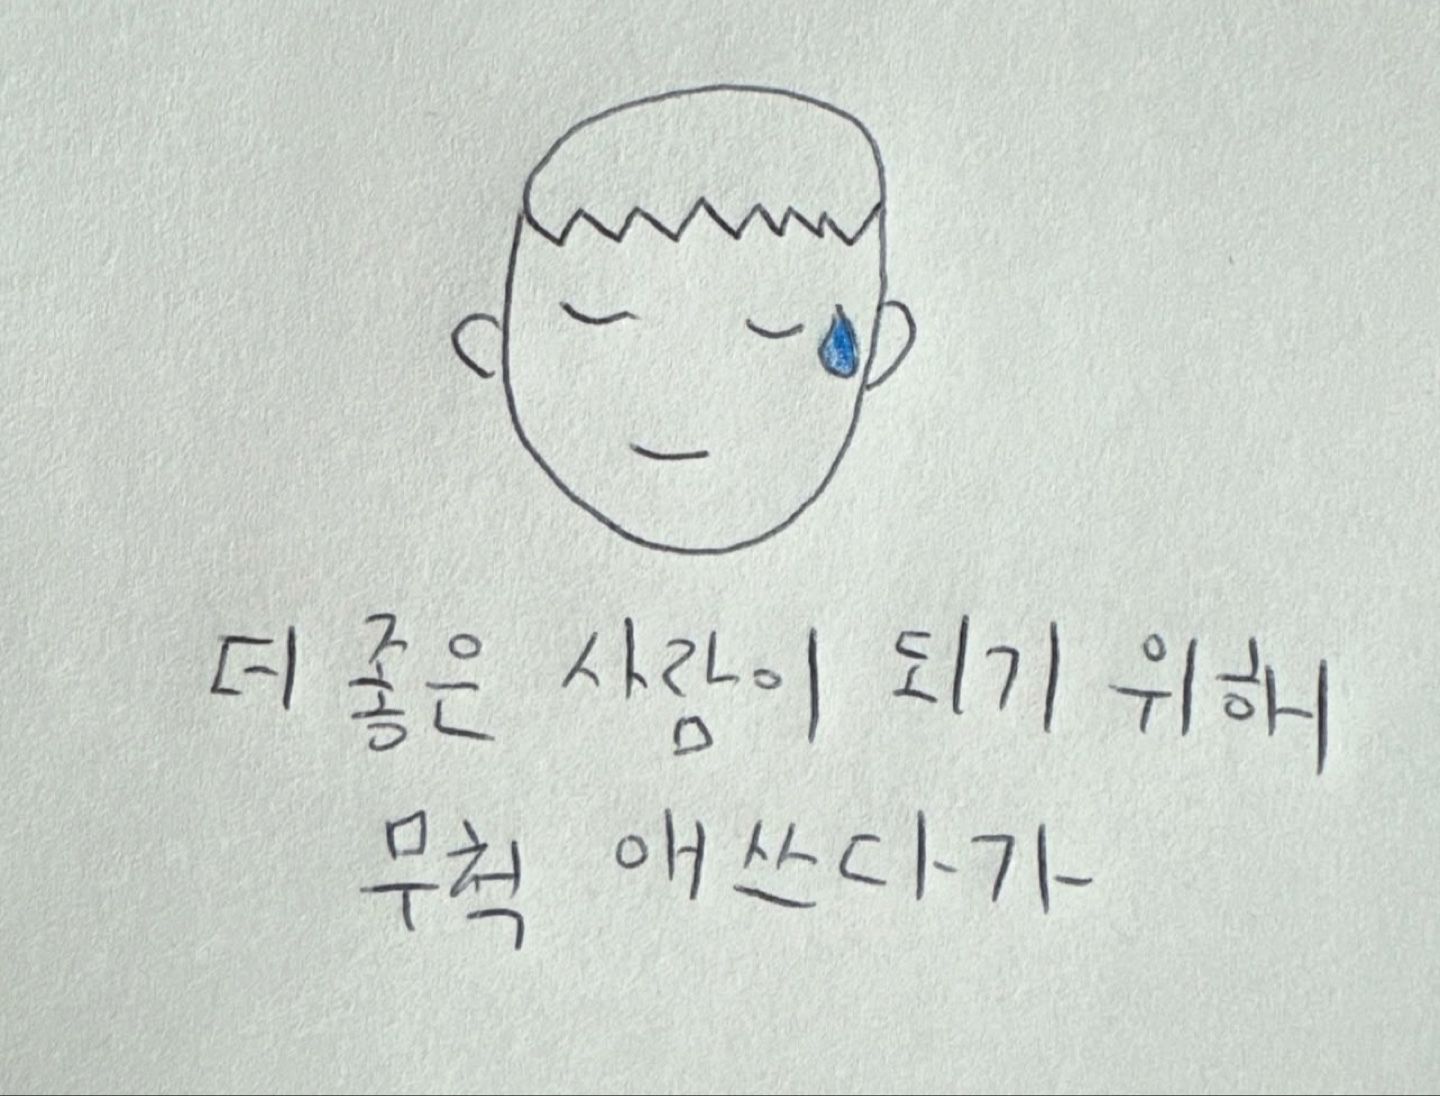 더 좋은 사람이 되기 위해
무척 애쓴다가